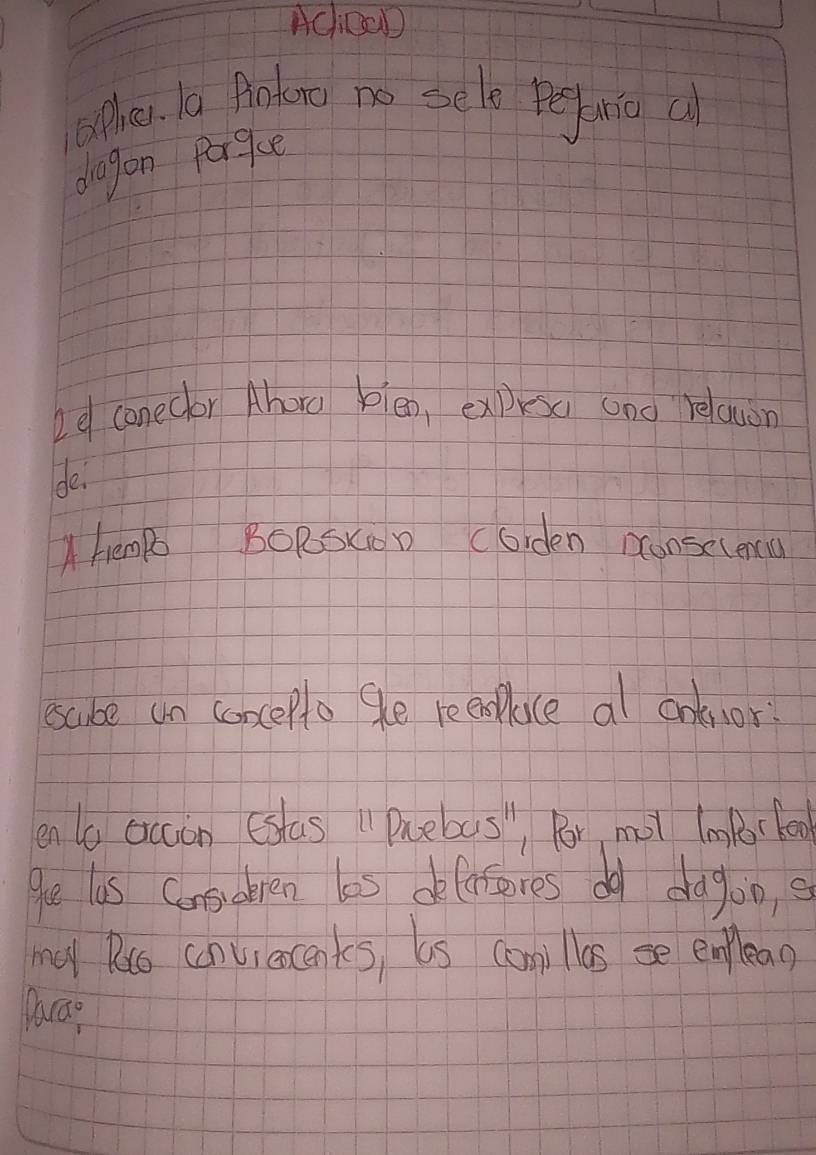 1 explica. la Pintura no sele Pegaria al
dragon Porque
2 el conector Ahora bien, expresa una relación
de:
A tiempo BOPosicion C Orden D consecuencia
escribe un concepto que reemplace al anterior:
en la oración Estas "Pruebas", Por muy importan
que las Consideren los defensores del dragon, s
muy Poco convincentes, las comillas se emplean
Para: